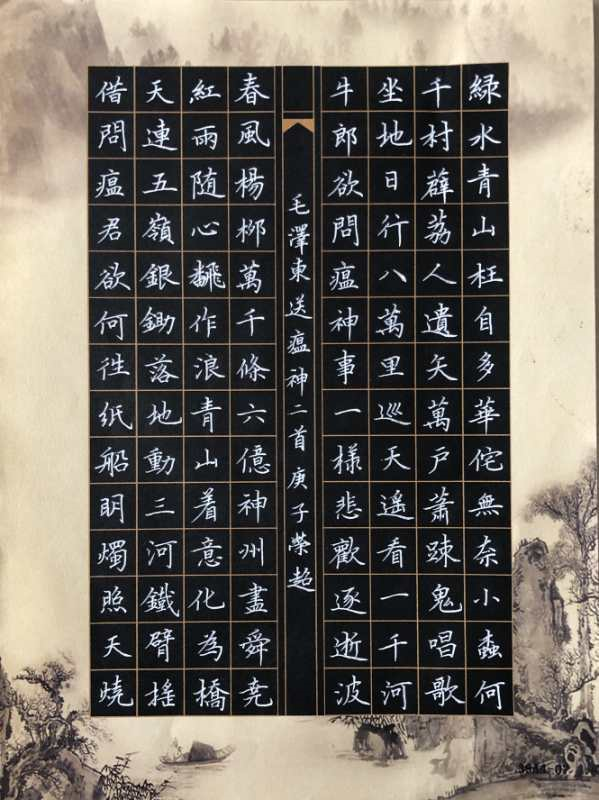 綠水青山枉自多華佗無奈小蟲何
千村薜荔人遺矢萬戶蕭踈鬼唱歌
坐地日行八萬里巡天遙看一千河
牛郎欲問瘟神事一樣悲歡逐逝波
毛澤東送瘟神二首庚子榮超
春風楊柳萬千條六億神州盡舜堯
紅雨隨心飜作浪青山着意化為橋
天連五嶺銀鋤落地動三河鐵臂搖
借問瘟君欲何徃紙船眀燭照天燒